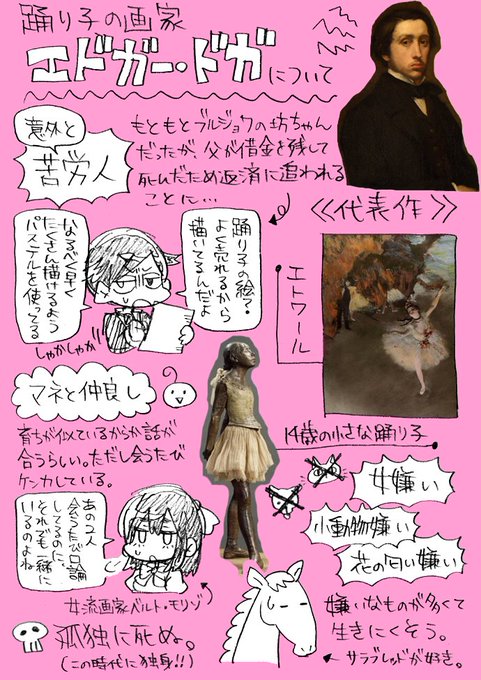 踊り子の画家
エドガー・ドガについて
意外と
苦労人
もともとブルジョワの坊ちゃん
だったが、父が借金を残して
死んだため返済に追われる
ことに…
《代表作》
踊り子の絵て
よく売れるから
描いてるんだよ
なるべく早く
たくさん描けるよう
パステルを使ってる
しゃかしゃか
エトワール
マネと仲良し
14歳の小さな踊り子
育ちが似ているからか話が
合うらしい。ただし会うたび
ケンカしている。
女嫌い
小動物嫌い
花の匂い嫌い
あの2人
会うたび口論
してるのに、
それでも一緒に
いるのよね
女流画家ベルト・モリゾ
嫌いなものが多くて
生きにくそう。
サラブレッドが好き。
孤独に死ぬ。
(この時代に独身!!)